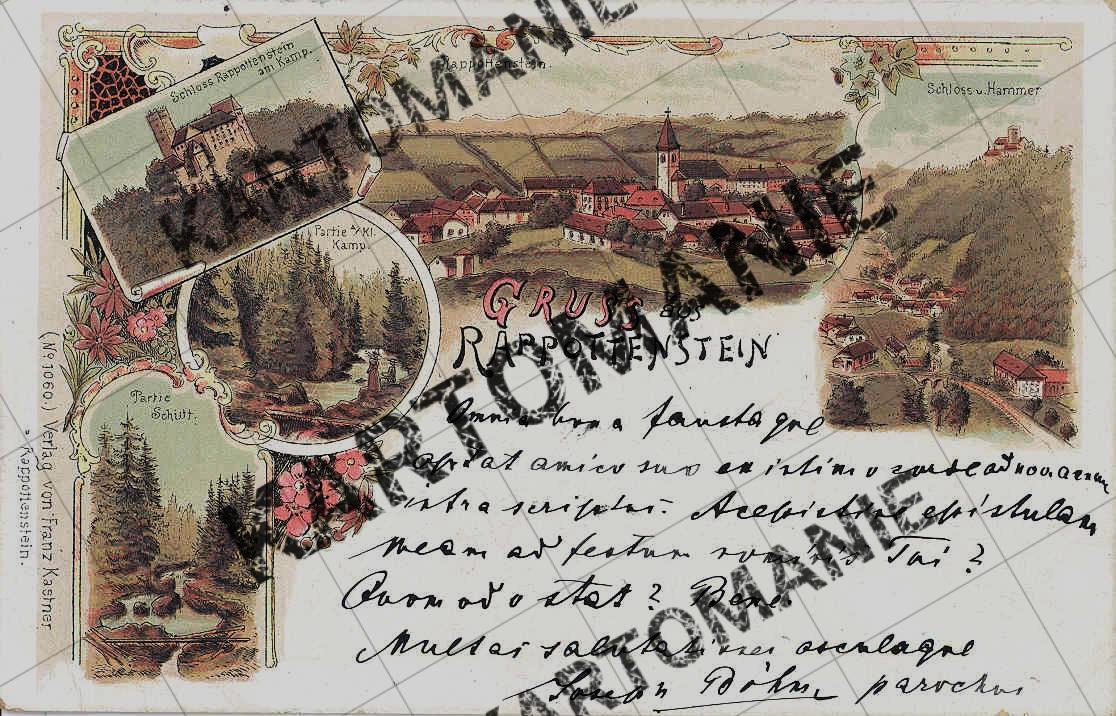 Schloss Rappottenstein
am Kamp.
Rappottenstein.
Schloss u. Hammer
Partie a/Kl.
Kamp.
GRUSS aus
RAPPOTTENSTEIN
Partie
Schütt.
(No 1060.) Verlag von Franz Kastner
Rappottenstein.
Omnia bona faustaque
optat amico suo
infra scriptus.
epistulam
meam ad festum Tui?
Quomodo stat? Bene.
Multas salutationes osculaque
Joseph Böhm parochus
KARTOMANIE
KARTOMANIE
KARTOMANIE
KARTOMANIE